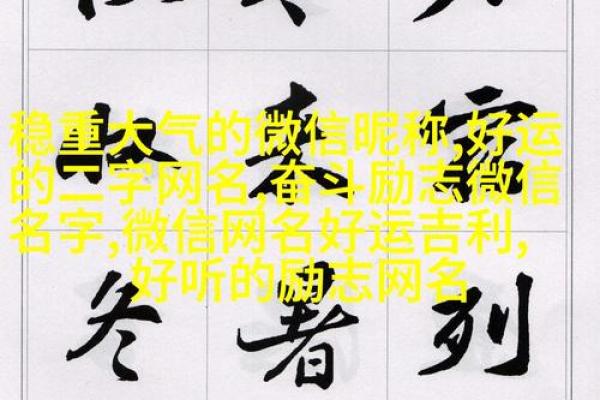 稳重大气的微信昵称,好运
的二字网名,奋斗励志微信
名字,微信网名好运吉利,
好听的励志网名
收来宿
冬暑列